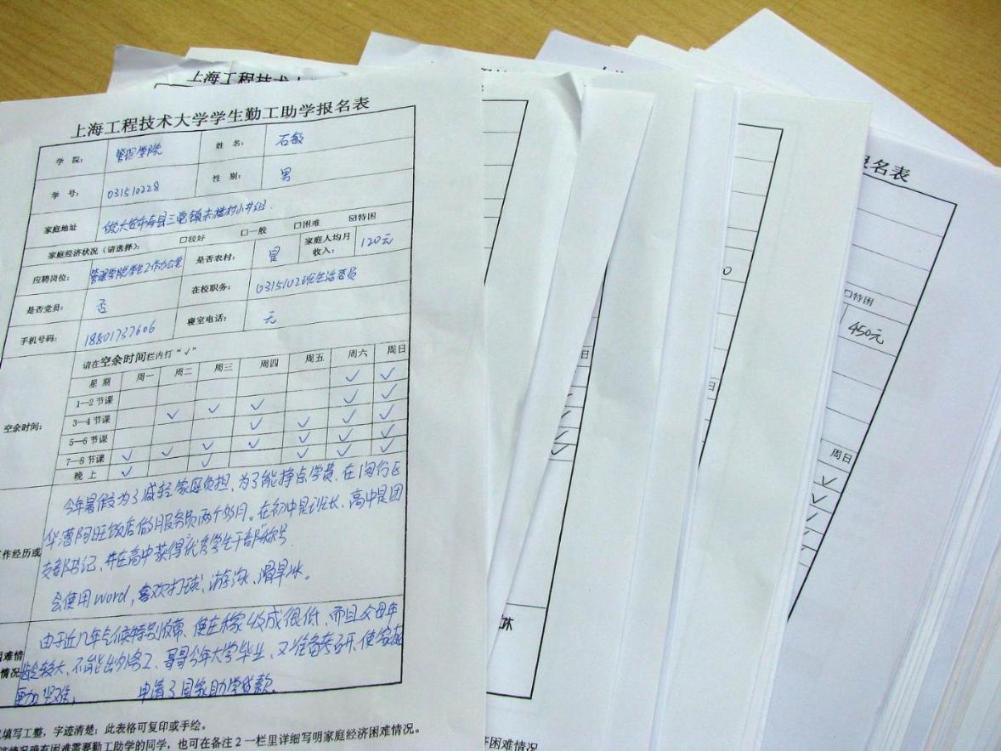 上海工程技术大
上海工程技术大学学生勤工助学报名表
学 院： 管理学院 姓 名： 石敏
学 号： 031510228 性 别： 男
家庭地址 市寿县三觉镇
家庭经济状况（请选择）： □较好 □一般 □困难 ☑特困
应聘岗位： 管理学院学生工作办公室 是否农村： 是 家庭人均月收入： 120元
是否党员： 否 在校职务： 0315102班生活委员
手机号码： 18801737606 寝室电话： 无
空余时间： 请在空余时间栏内打“√”
星 期 周一 周二 周三 周四 周五 周六 周日
1—2 节课 √ √
3—4 节课 √ √ √ √ √
5—6 节课 √ √ √ √
7—8 节课 √ √ √ √ √ √ √
晚 上 √ √ √ √ √ √
作经历或
今年暑假为了减轻家庭负担、为了能挣点学费、在闵行区
华漕阿旺饭店做服务员两个多月。在初中是班长、高中是团
支部书记、并在高中获得“优秀学生干部”称号
会使用word，喜欢打球、游泳、滑旱冰。
困难情
情况
由于近几年气候特别反常、使庄稼收成很低、而且父母年
龄较大、不能出外务工、哥哥今年大学毕业、又准备考研、使家庭
更加困难。 申请了国家助学贷款。
填写工整，字迹清楚；此表格可复印或手绘。
有困难需要勤工助学的同学，也可在备注 2 一栏里详细写明家庭经济困难情况。
日
日
0
困难情况。
报名表
□特困
450元
周日
√
√
√
√